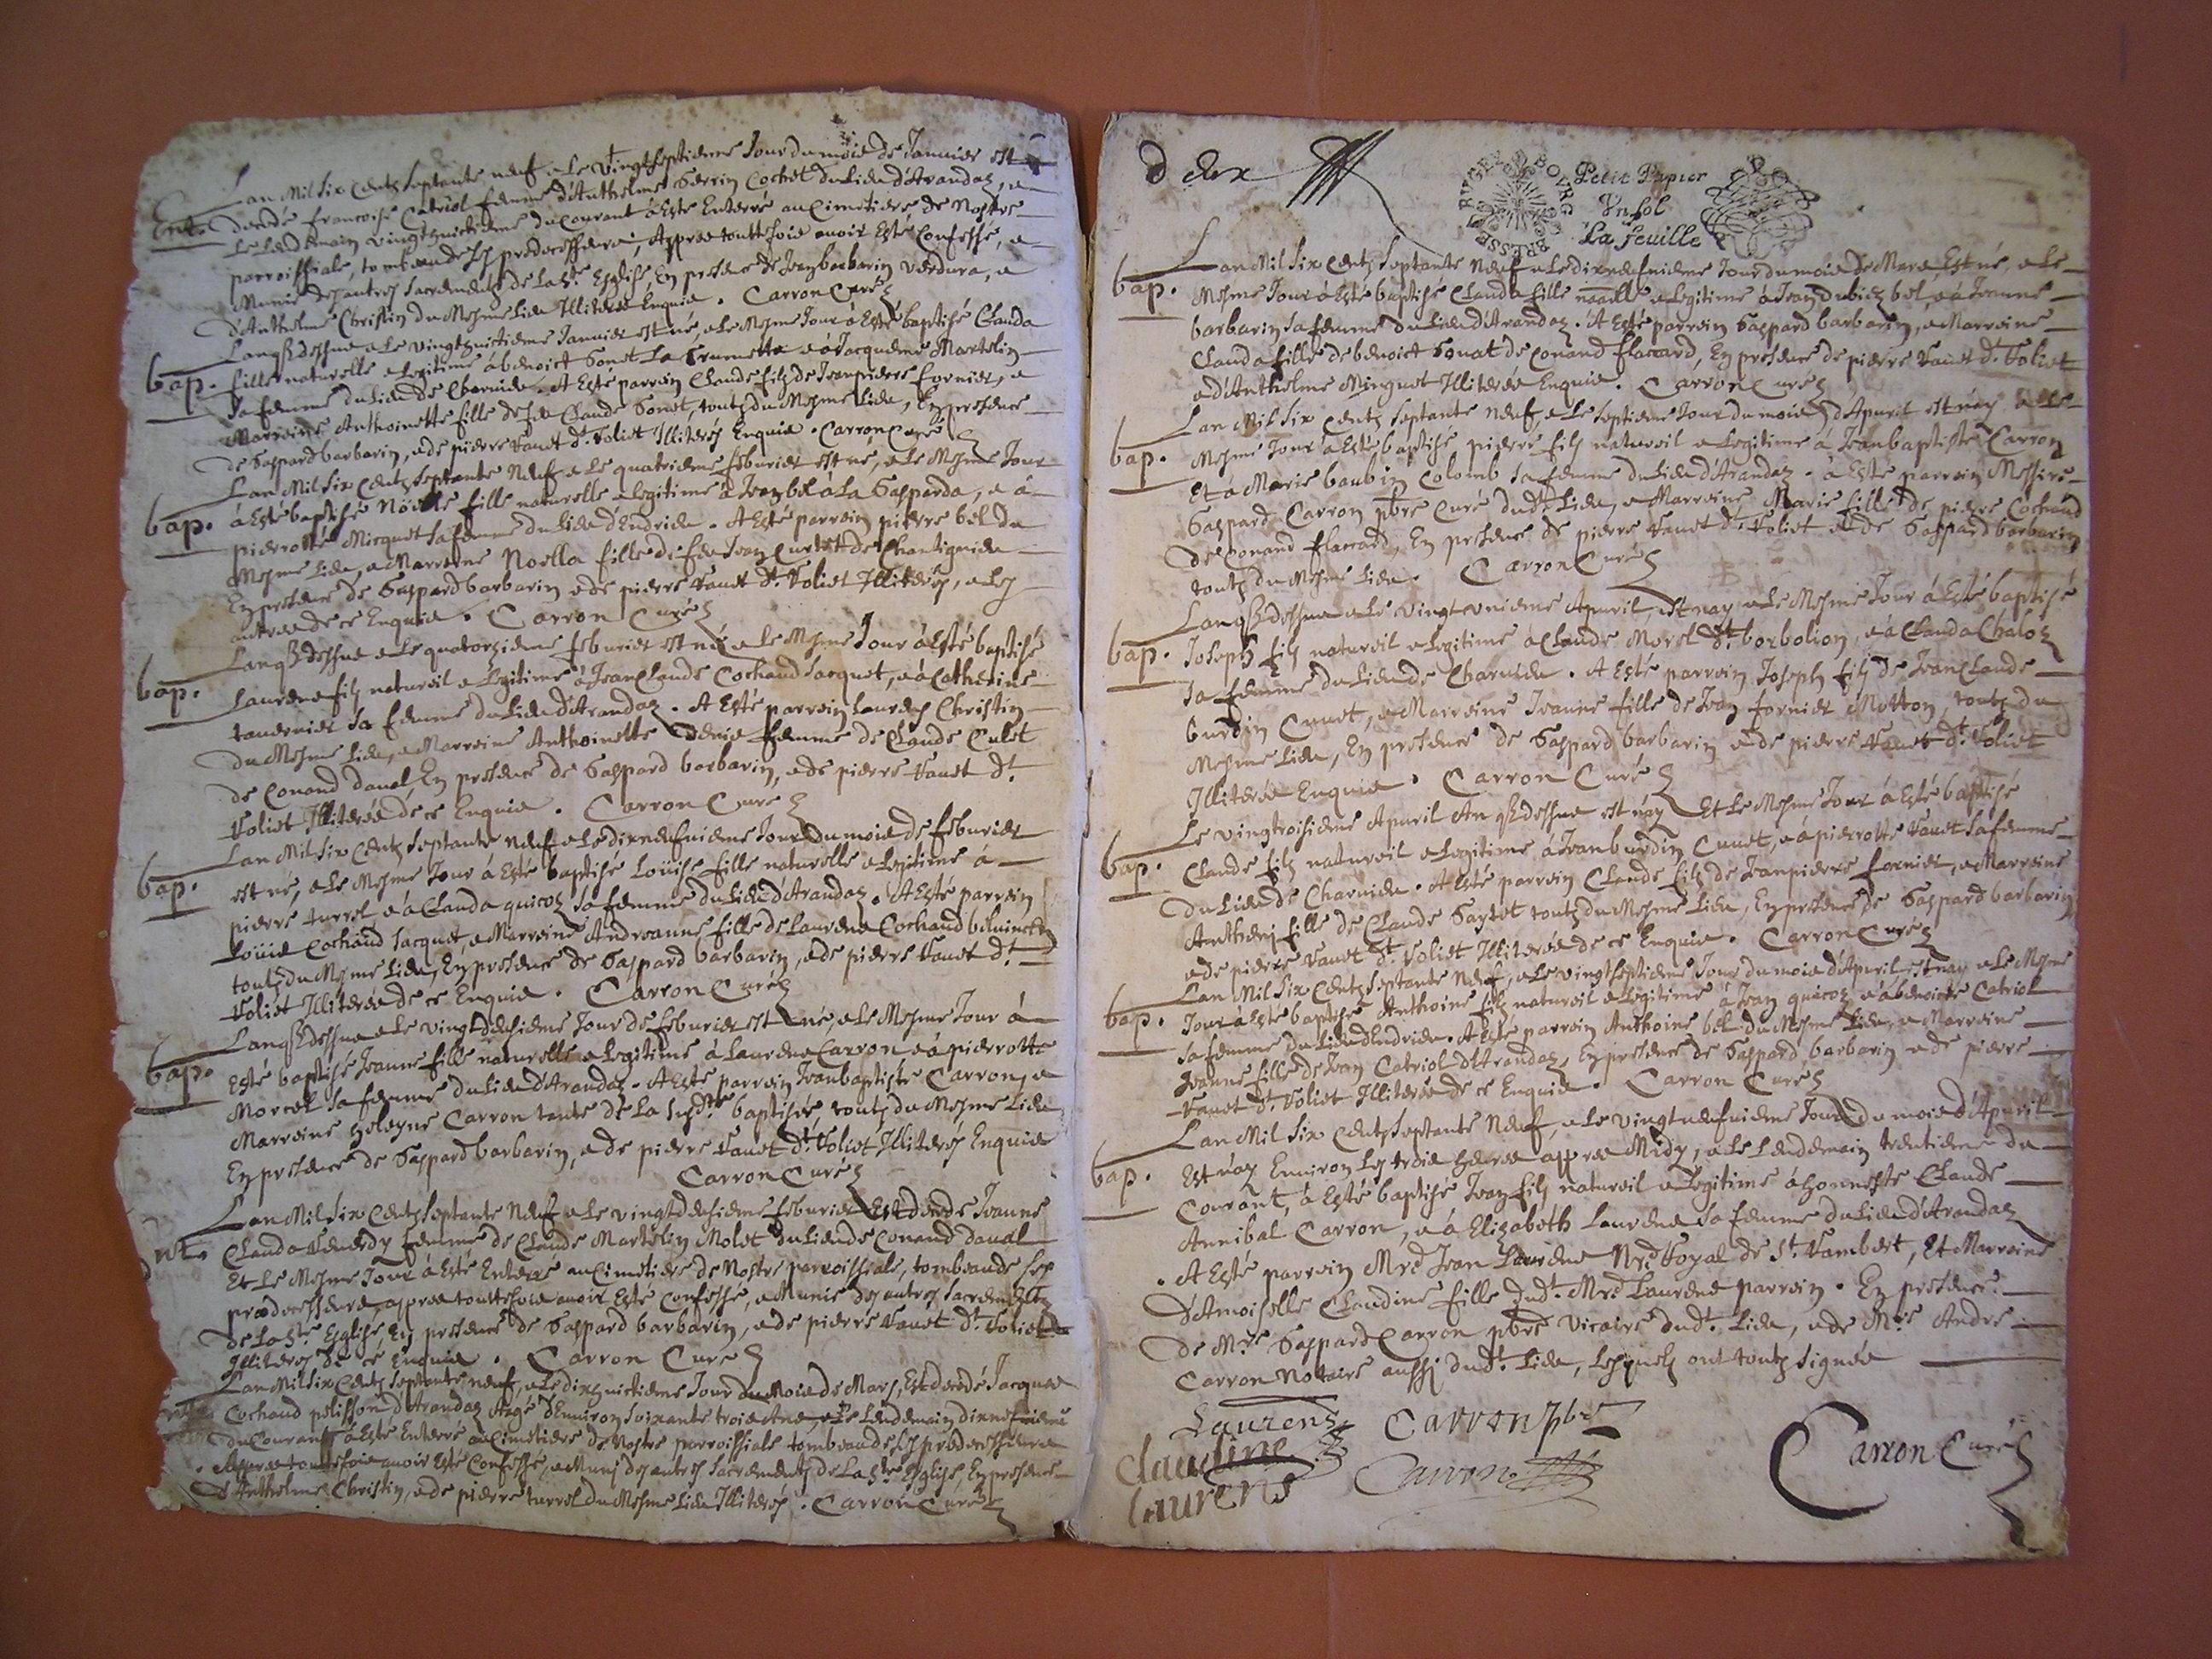 Lan Mil six centz septante neuf e Le vingtseptieme Jour du mois de Januier est
Ent. decedé francoise Catriol femme d'Anthelme Perrin Cochet du Lieu d'Arandaz, e
Le Lendemain vingthuictieme du courant à Esté Enterré au Cimetiere de Nostre
parroissiale, tombeau de ses predecesseurs, Appres touttefois auoir Esté Confessé, e
Munie des autres sacrementz de La Ste Esglise, En presence de Jean barbarin verdura, e
d'Anthelme Christin du Mesme Lieu Illiteres Enquis. Carron Curé
Lan q dessus e Le vingthuictieme Januier est né, e Le Mesme Jour à Esté baptisé Clauda
bap. fille naturelle e Legitime à benoict Gonet La e à Jacqueme Martelin
sa femme du Lieu de Charuieu. A Esté parrein Claude filz de Jeanpierre fornier, e
Marreine Anthoinette fille de feu Claude Gonet, toutz du Mesme Lieu, En presence
de Gaspard barbarin, e de pierre Vanet dt. Voliet Illiteres Enquis. Carron Curé
Lan Mil six centz septante Neuf e Le quatrieme feburier est né, e Le Mesme Jour
bap. à Esté baptisé Noëlle fille naturelle e Legitime à Jean bel à La Gasparda, e à
pierrotte Micquet sa femme du Lieu d'Endrieu. A Esté parrein pierre bel du
Mesme Lieu, e Marreine Noella fille de feu Jean Curtet de Chantignieu
En presence de Gaspard barbarin e de pierre Vanet dt. Voliet Illiteres, e Les
autres de ce Enquis. Carron Curé
Lan q dessus e Le quatorzieme feburier est né e Le Mesme Jour à Esté baptisé
bap. Laurens filz naturel e Legitime à Jean Claude Cochaud Jacquet, e à Catherine
tauernier sa femme du Lieu d'Arandaz. A Esté parrein Laurens Christin
du Mesme Lieu, e Marreine Anthoinette femme de Claude Culet
de Conand daual, En presence de Gaspard barbarin, e de pierre Vanet dt.
Voliet Illiterés de ce Enquis. Carron Curé
Lan Mil six centz septante Neuf e Le dixneufuieme Jour du mois de feburier
bap. est né, e Le Mesme Jour à Esté baptisé Loüise fille naturelle e Legitime à
pierre turrel e à Clauda quicoz sa femme du Lieu d'Arandaz. A Esté parrein
Loüis Cochaud Jacquet, e Marreine Andreanne fille de Laurens Cochaud
toutz du Mesme Lieu, En presence de Gaspard barbarin, e de pierre Vanet dt.
Voliet Illiterés de ce Enquis. Carron Curé
Lan q dessus e Le vingtdeusieme Jour de feburier est né, e Le Mesme Jour à
bap. Esté baptisé Jeanne fille naturelle e Legitime à Laurens Carron e à pierrotte
Morcel sa femme du Lieu d'Arandaz. A Esté parrein Jeanbaptiste Carron, e
Marreine heleyne Carron tante de La susdte baptisée toutz du Mesme Lieu
En presence de Gaspard barbarin, e de pierre Vanet dt. Voliet Illiteres Enquis
Carron Curé
Lan Mil six centz septante Neuf e Le vingtdeusieme feburier Est decede Jeanne
Ent. Clauda Venerdy femme de Claude Martelin Molet du Lieu de Conand daual
Et Le Mesme Jour à Esté Enterré au Cimetiere de Nostre parroissiale, tombeau de ses
predecesseurs, appres touttefois auoir Esté Confessé, e Munie des autres sacrementz
de La Ste Esglise En presence de Gaspard barbarin, e de pierre Vanet dt. Voliet
Illiteres de ce Enquis. Carron Curé
Lan Mil six centz septante neuf, e Le dixhuictieme Jour du Mois de Mars, Est decedé Jacques
Cochaud pelisson d'Arandaz Aagé d'Enuiron soixante trois Ans, e Le Lendemain dixneufuieme
du Courant à Esté Enterré au Cimetiere de Nostre parroissiale tombeau de ses predecesseurs
Appres touttefois auoir Esté Confessé, e Muni des autres sacrementz de La Ste Esglise, En presence
d'Anthelme Christin, e de pierre turrel du Mesme Lieu Illiteres. Carron Curé
BOVRG BRESSE BVGEY
Petit Papier
Vn sol
La feuille
Lan Mil six centz septante Neuf e Le dixneufuieme Jour du mois de Mars Est né, e Le
bap. Mesme Jour à Esté baptisé Clauda fille naalle e Legitime à Jean bel, e à Jeanne
barbarin sa femme du Lieu d'Arandaz. A Esté parrein Gaspard barbarin, e Marreine
Clauda fille de benoict Gonat de Conand flaccard, En presence de pierre Vanet dt. Voliet
e d'Anthelme Minguet Illiterés Enquis. Carron Curé
Lan Mil six centz septante Neuf, e Le septieme Jour du mois d'Apuril est nay e Le
bap. Mesme Jour à Esté baptisé pierre filz naturel e Legitime à Jeanbaptiste Carron
Et à Marie baubin Colomb sa femme du Lieu d'Arandaz. à Esté parrein Messire
Gaspard Carron pbre Curé dudt. Lieu, e Marreine Marie fille de pierre Cochaud
de Conand flaccard, En presence de pierre Vanet dt. Voliet e de Gaspard barbarin
toutz du Mesme Lieu. Carron Curé
Lan q dessus e Le vingtvnieme Apuril, est nay e Le Mesme Jour à Esté baptisé
bap. Joseph filz naturel e Legitime à Claude Morel dt. borbolion, e à Clauda Chaloz
sa femme du Lieu de Charuieu. A Esté parrein Joseph filz de Jean Claude
burdin Cunet, e Marreine Jeanne fille de Jean fornier Motton, toutz du
Mesme Lieu, En presence de Gaspard barbarin e de pierre Vanet dt. Voliet
Illiterés Enquis. Carron Curé
Le vingtroisieme Apuril An q dessus est nay Et Le Mesme Jour à Esté baptisé
bap. Claude filz naturel e Legitime à Jean burdin Cunet, e à pierrotte Vanet sa femme
du Lieu de Charuieu. A Esté parrein Claude filz de Jeanpierre fornier, e Marreine
Anthenj fille de Claude toutz du Mesme Lieu, En presence de Gaspard barbarin
e de pierre Vanet dt. Voliet Illiterés de ce Enquis. Carron Curé
Lan Mil six centz septante Neuf, e Le vingtseptieme Jour du mois d'Apuril est nay e Le Mesme
bap. Jour à Esté baptisé Anthoine filz naturel e Legitime à Jean quicoz e à benoicte Catriol
sa femme du Lieu d'Endrieu. A Esté parrein Anthoine bel du Mesme Lieu, e Marreine
Jeanne fille de Jean Catriol d'Arandaz, En presence de Gaspard barbarin e de pierre
Vanet dt. Voliet Illiterés de ce Enquis. Carron Curé
Lan Mil six centz septante Neuf, e Le vingtneufuieme Jour du mois d'Apuril
bap. Est nay Enuiron Les trois heures appres Midy, e Le Lendemain trentieme du
Courant, à Esté baptisé Jean filz naturel e Legitime à honneste Claude
Annibal Carron, e à Elizabeth Laurens sa femme du Lieu d'Arandaz
. A Esté parrein Mre Jean Laurens Nre Royal de St. Rambert, Et Marreine
D'Amoiselle Claudine fille dudt. Mre Laurens parrein. En presence
de Mre Gaspard Carron pbre vicaire dudt. Lieu, e de Mre André
Carron Notaire aussj dudt. Lieu, Lesquelz ont toutz signés
Laurens Carron pbre
claudine
laurens Carron Carron Curé